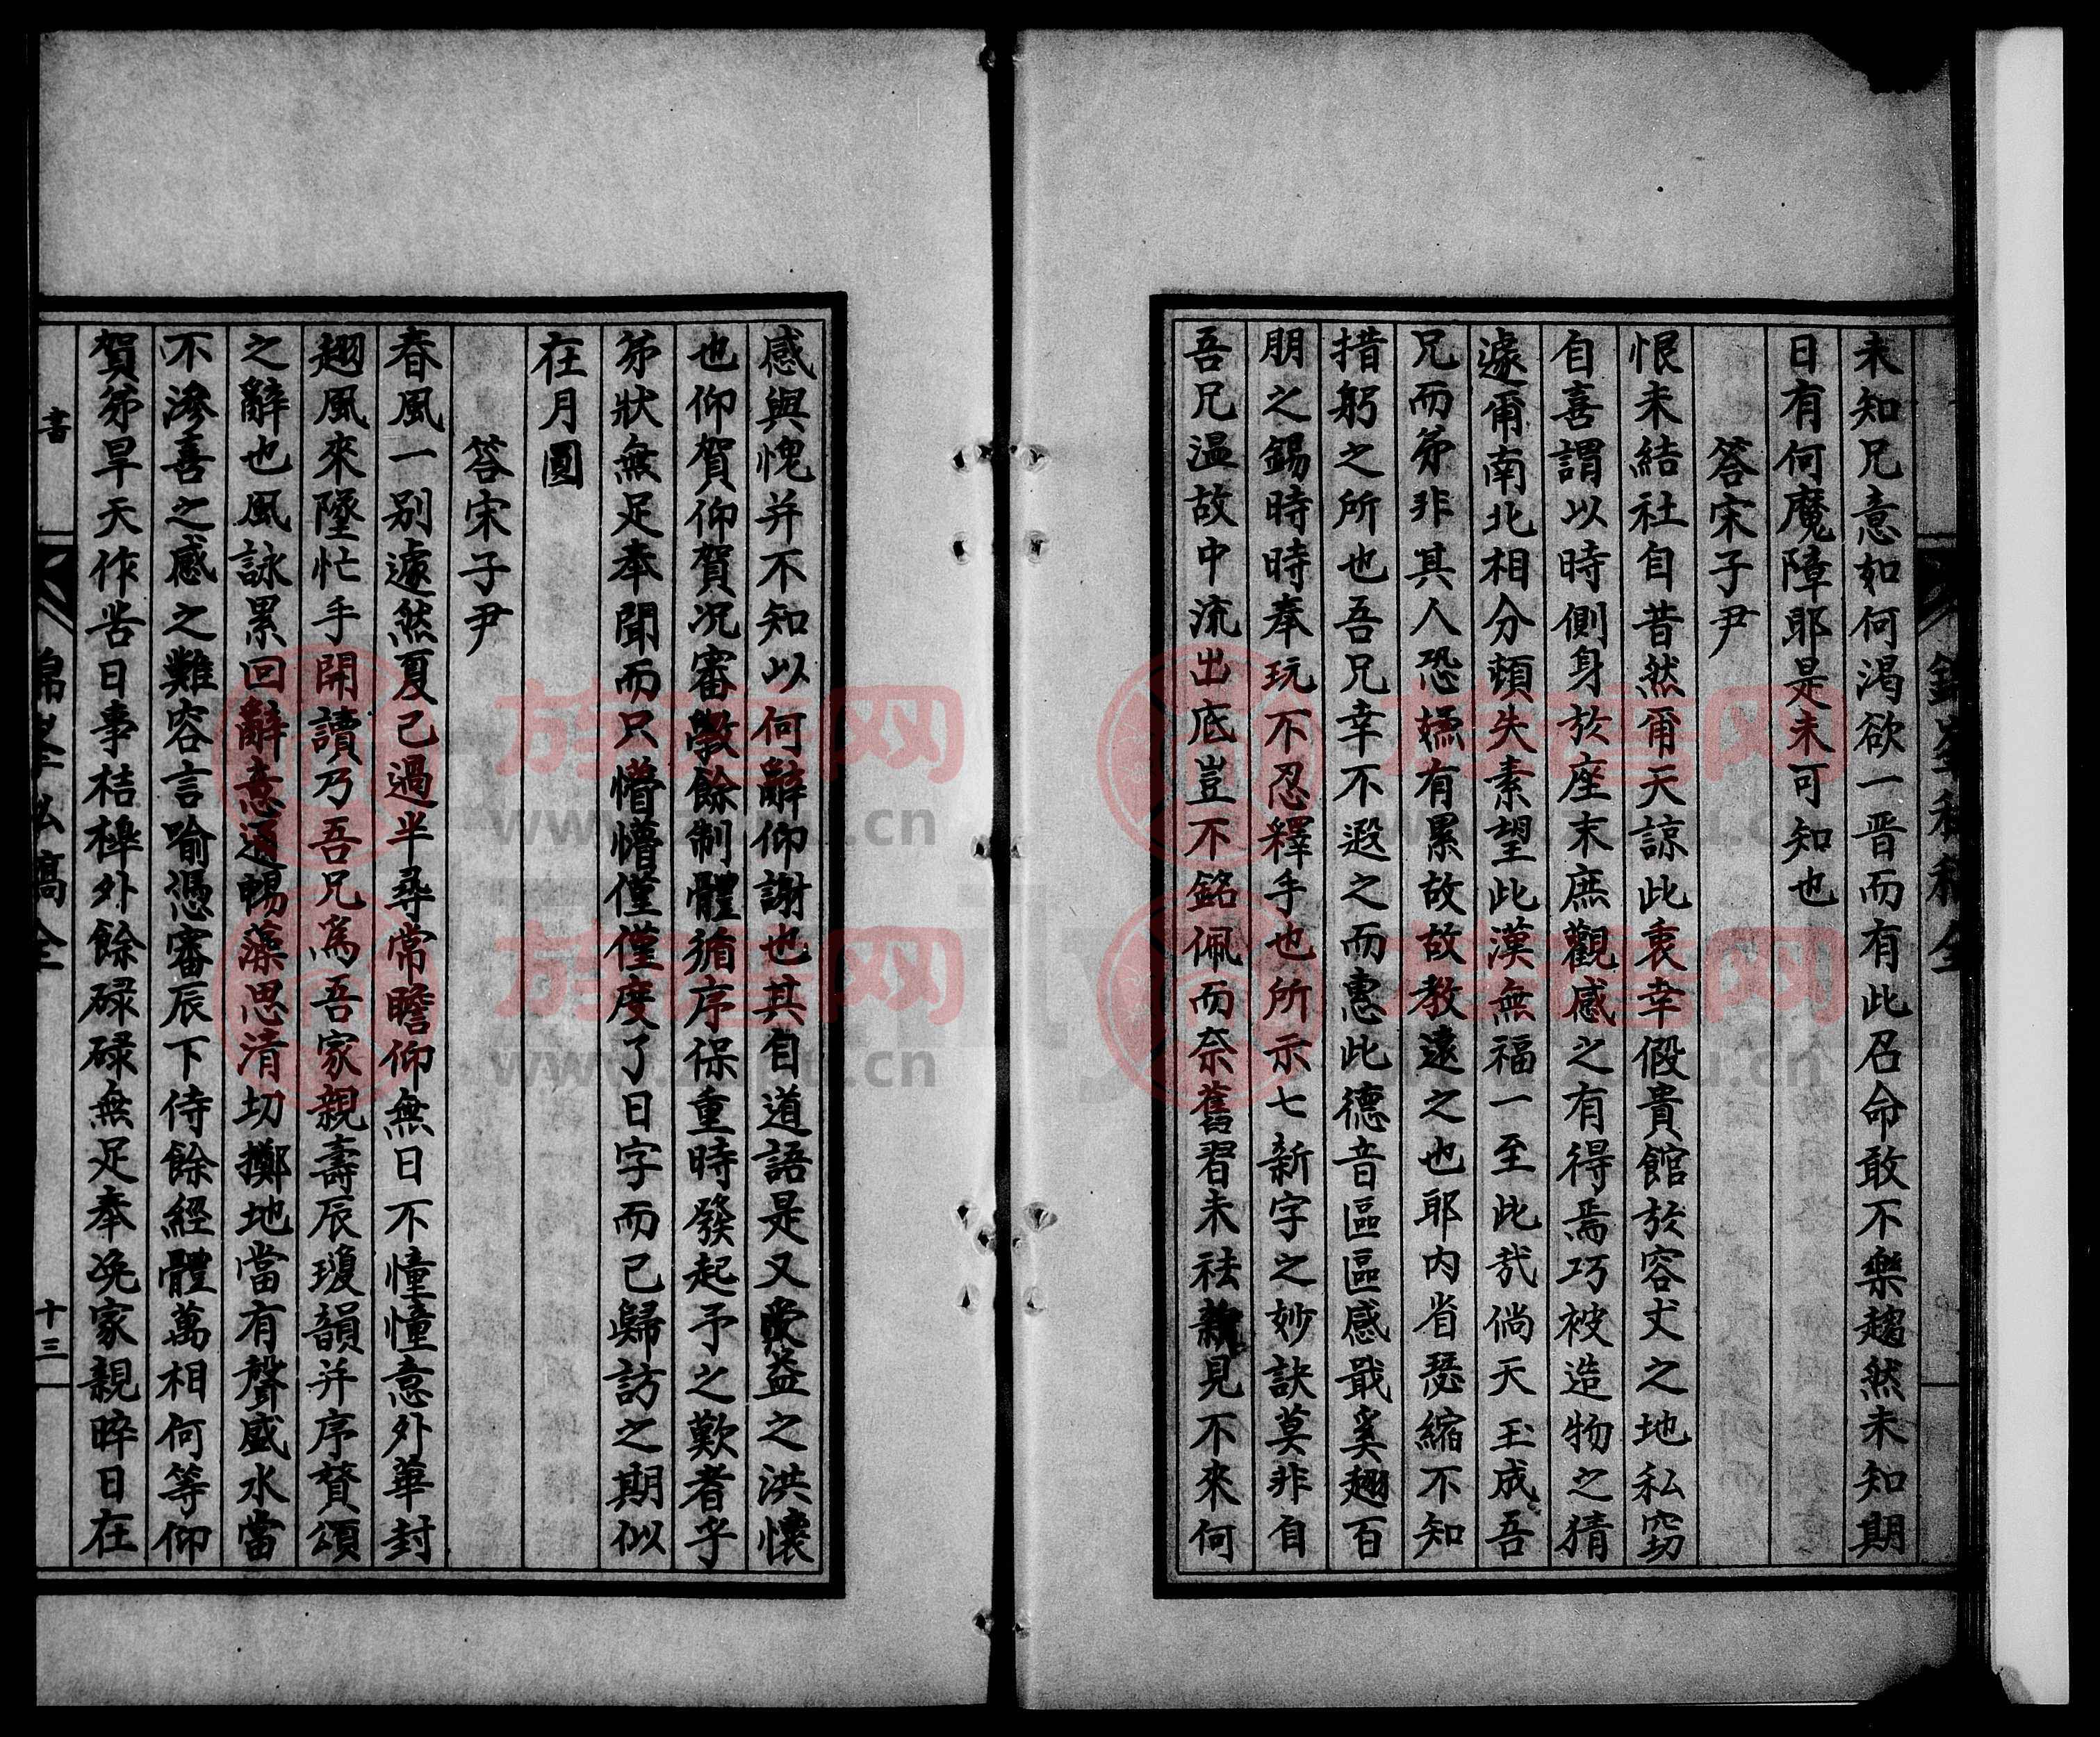 未知兄意如何渴欲一晋而有此召命敢不樂趨然未知期
日有何魔障耶是未可知也
答宋子尹
恨未結社自昔然甭天諒此衷幸假貴館於容丈之地私窃
自喜謂以時側身於座末庶觀感之有得焉巧被造物之猜
遽甭南北相分頓失素望此漢無福一至此㢤倘天玉成吾
兄而苐非其人恐嫣有累故故教遠之也耶内省瑟縮不知
措躬之所也吾兄幸不遐之而惠此德音區區感戢奚趐百
朋之錫時時奉玩不忍釋手也所示七新字之妙訣莫非自
吾兄温故中流出底豈不銘佩而奈舊習未祛新見不來何
感與愧并不知以何辭仰謝也其自道語是又受益之洪懷
也仰賀仰賀况審斆餘制體循序保重時發起予之歎者乎
苐狀無足奉聞而只懵懵僅僅度了日字而已歸訪之期似
在月圓
答宋子尹
春風一别遽然夏已過半尋常瞻仰無日不憧憧意外華封
趐風來墜忙手開讀乃吾兄爲吾家親壽辰瓊韻并序賛頌
之辭也風詠累回辭意通暢藻思清切擲地當有聲盛水當
不滲喜之感之難容言喻憑審辰下侍餘經體萬相何等仰
賀苐旱天作苦日事桔槹外餘碌碌無足奉浼家親晬日在
書
錦峯私稿全
十三
族谱网
www.zupu.cn